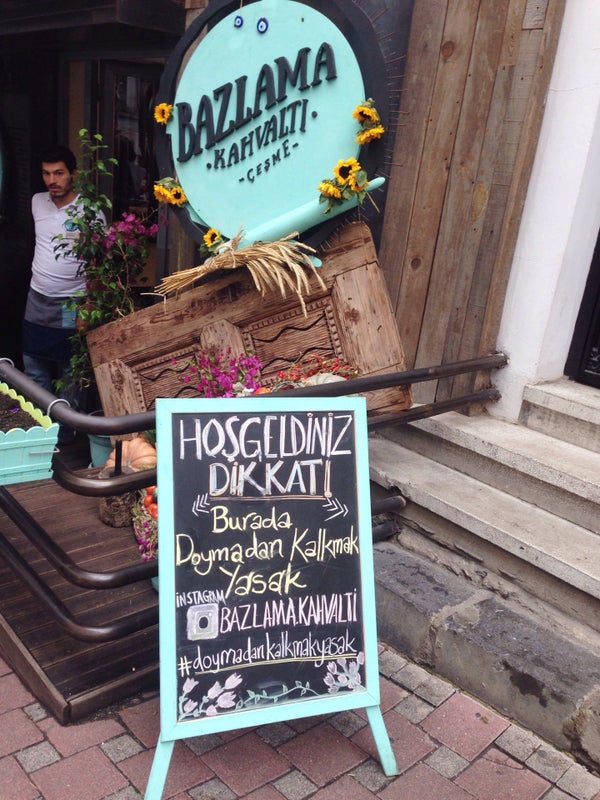 BAZLAMA
• KAHVALTI •
- ÇEŞME -
HOŞGELDİNİZ
DİKKAT!
Burada
Doymadan Kalkmak
Yasak
INSTAGRAM
BAZLAMA.KAHVALTI
#doymadankalkmakyasak